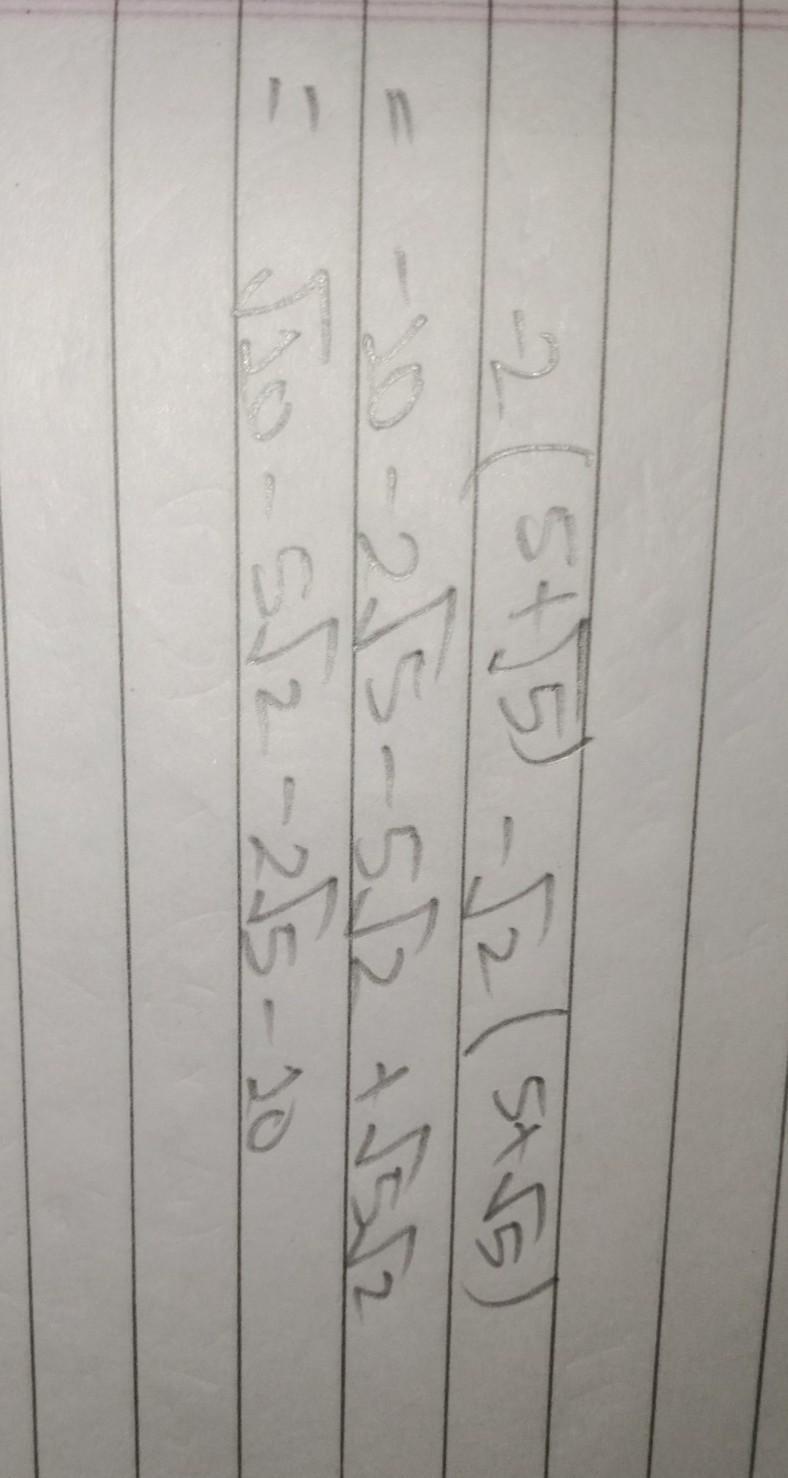 -2(5+√5) -√2(5+√5)
= -10 -2√5 -5√2 +√5√2
= √10 -5√2 -2√5 -10